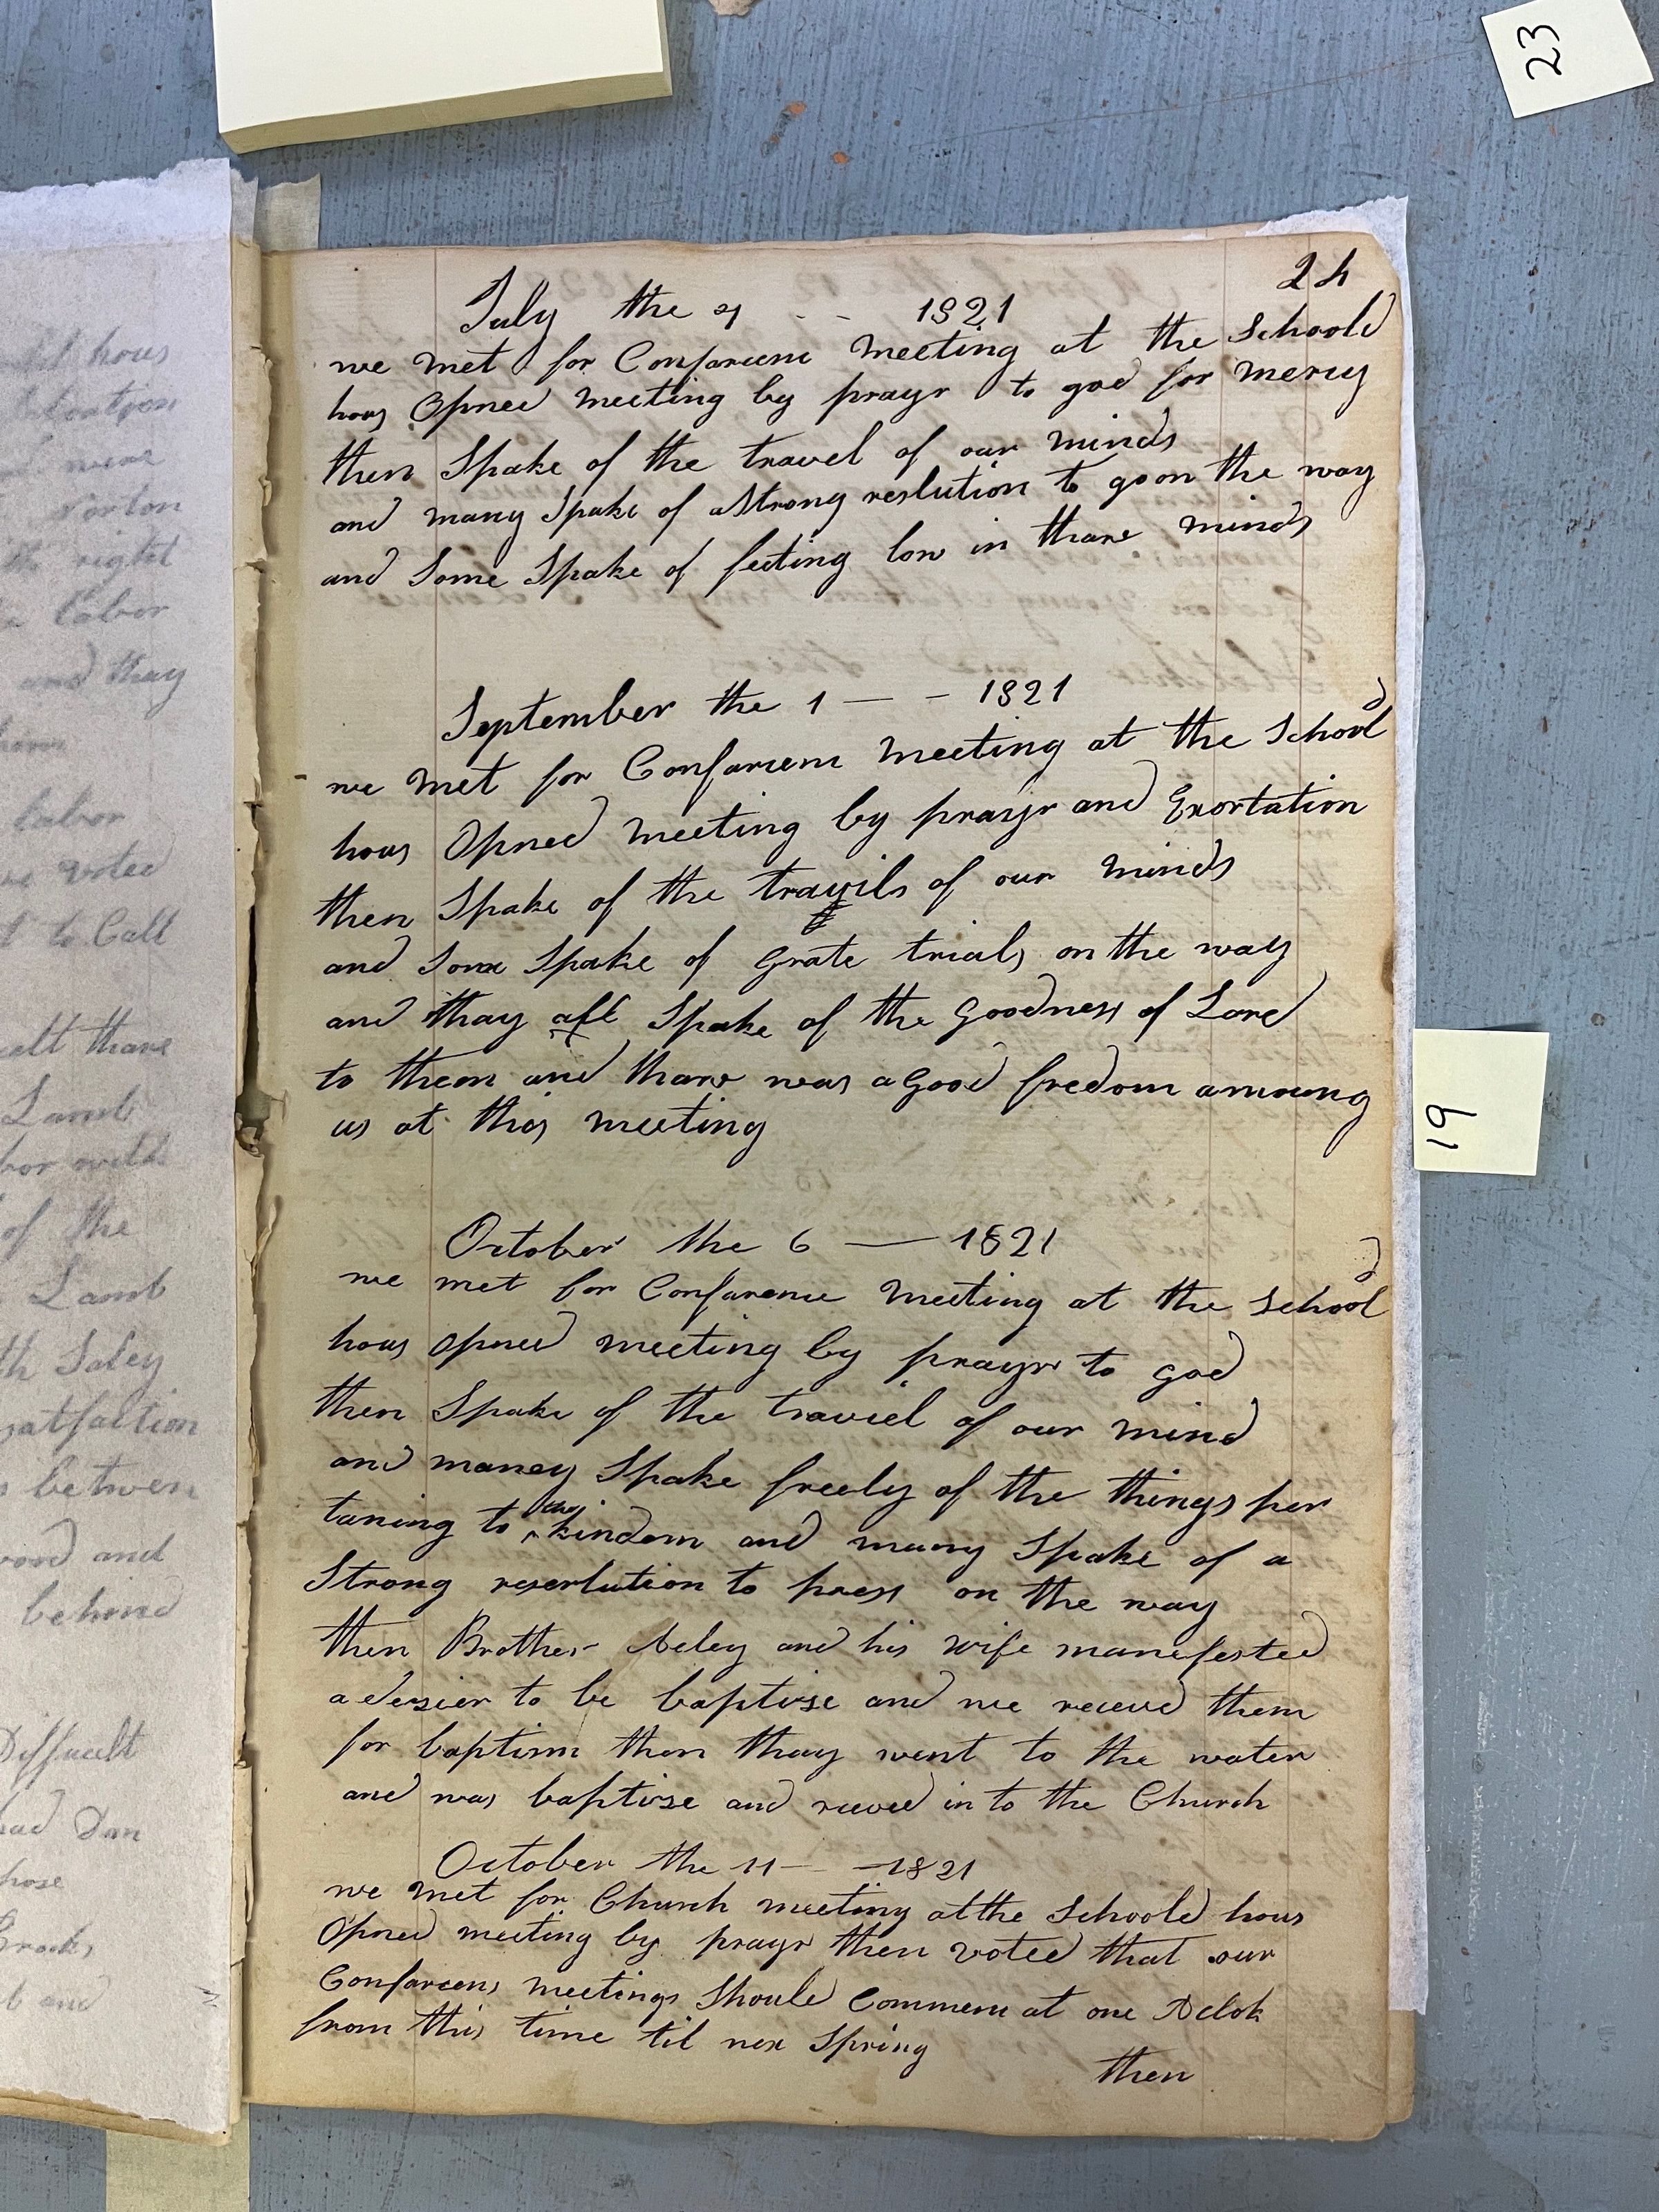 23
24
July the 1821
we met for Confarienc meeting at the Schoold
hous Opned meeting by prayr to god for mercy
then Spake of the travel of our minds
and many Spake of a Strong reslution to go on the way
and Some Spake of feeling low in thare minds
September the 1 — – 1821
we met for Confarienc meeting at the Schoold
hous Opned meeting by prayr and Exortation
then Spake of the travils of our minds
and Some Spake of Grate trials on the way
and thay all Spake of the Goodness of Lord
to them and thare was a Good fredom amoung
us at this meeting
October the 6 — 1821
we met for Confarence meeting at the Schoold
hous opned meeting by prayr to god
then Spake of the traviel of our mind
and maney Spake freely of the things per
taning to the kindom and many Spake of a
Strong reserlution to press on the way
then Brother and his wife manefested
a desier to be baptise and we receved them
for baptism then thay went to the water
and was baptise and receved in to the Church
October the 11 — – 1821
we met for Church meeting at the Schoold hous
Opned meeting by prayr then voted that our
Confarcens meetings Should Commenc at one Aclok
from this time til nex Spring
then
19
hous
Norton
the right
labor
and thay
labor
voted
to Call
thare
Lamb
of the
Lamb
Satfaction
betwen
and
behind
Difficult
Dan
and